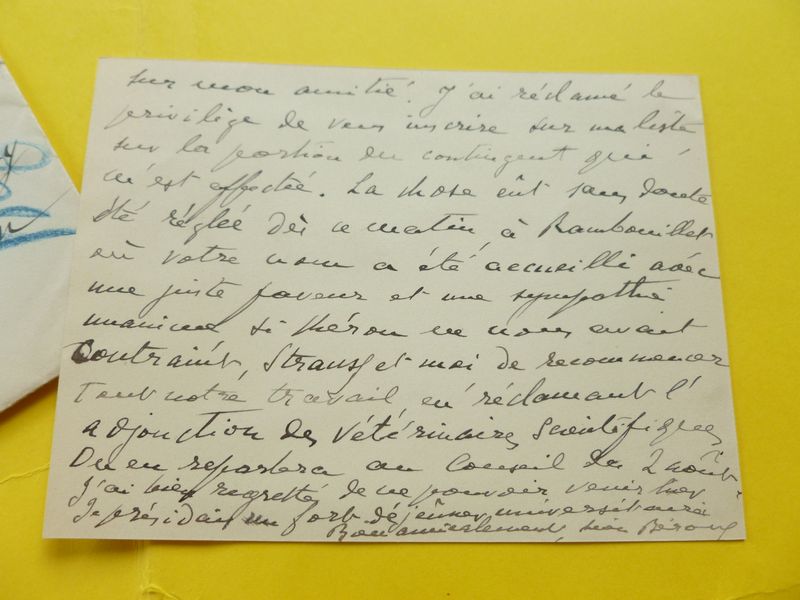 sur mon amitié. J'ai réclamé le
privilège de vous inscrire sur ma liste
sur la portion du contingent qui
m'est affectée. La chose eût sans doute
été réglée dès ce matin, à Rambouillet
où votre nom a été accueilli avec
une juste faveur et une sympathie
unanime si Théron ne nous avait
contraint, Strauss et moi de recommencer
tout notre travail en réclamant l'
adjonction des Vétérinaires Scientifiques
On en reparlera au Conseil du 2 août
J'ai bien regretté de ne pouvoir venir hier
Je présidais un fort déjeuner universitaire
Bon amicalement, Léon Bérard